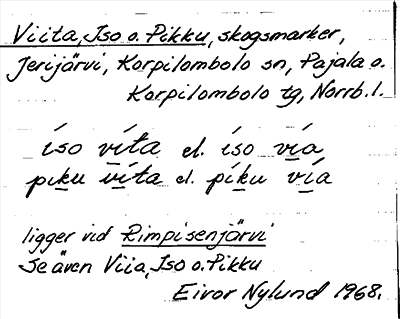 Viita, Iso o. Pikku, skogsmarker,
Jerijärvi, Korpilombolo sn, Pajala o.
Korpilombolo tg, Norrb. l.
íso víta el. íso vía
píku víta el. píku vía
ligger vid Rimpisenjärvi
Se även Viia, Iso o. Pikku
Eivor Nylund 1968.